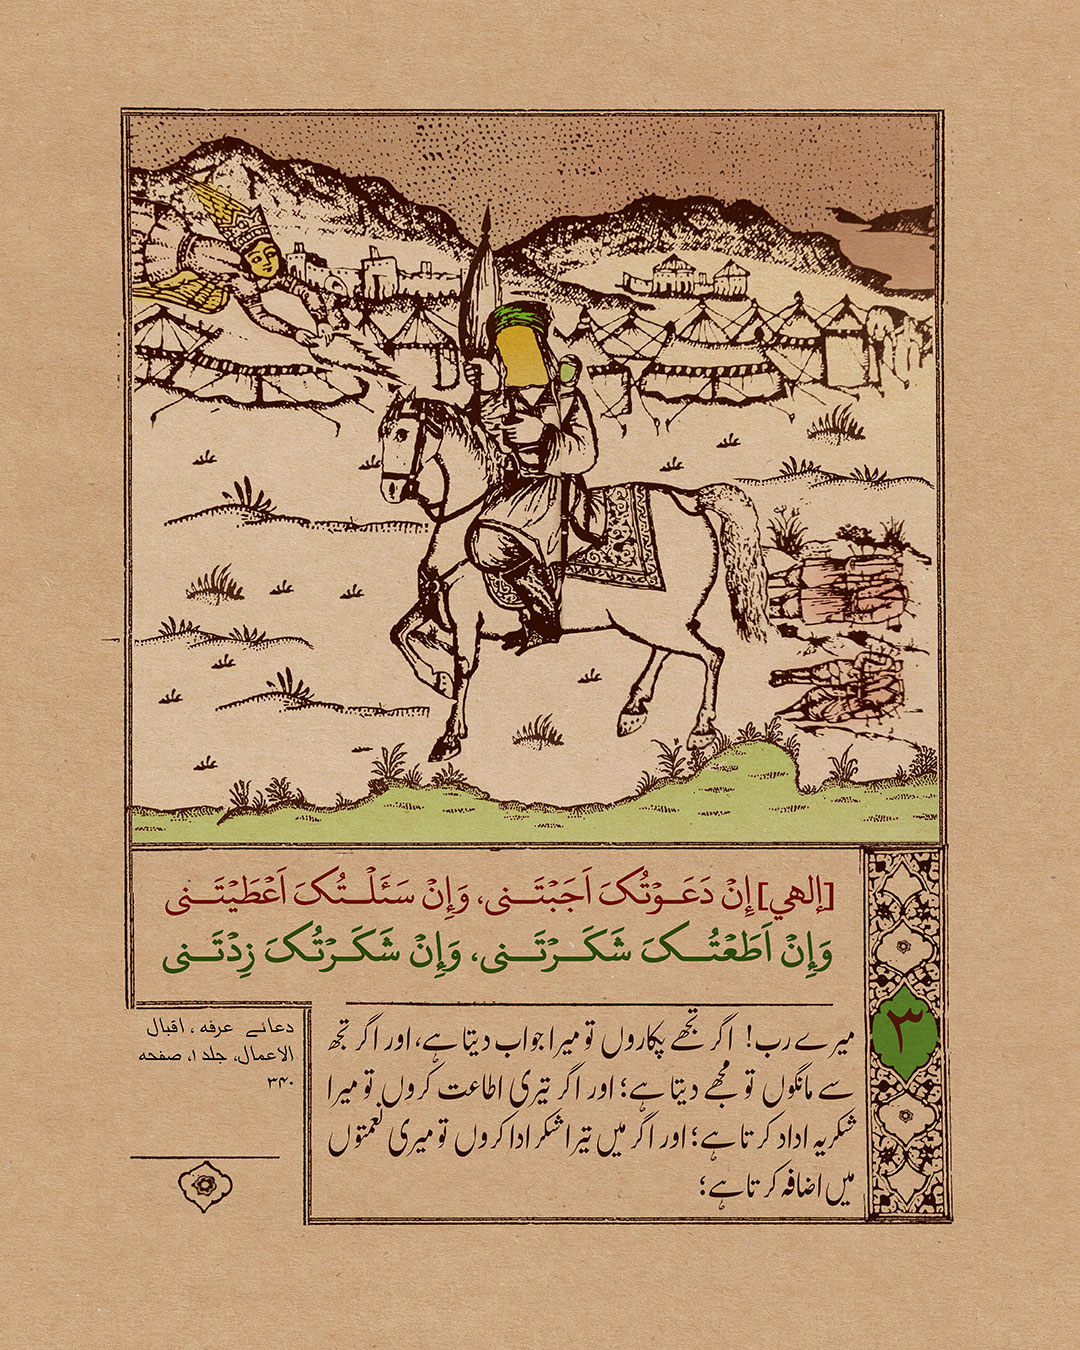 [إلهي] إِنْ دَعَـوْتُکَ اَجَبْتَـنی، وَإِنْ سَئَلْـتُکَ اَعْطَیْتَـنی
وَإِنْ اَطَعْتُـکَ شَکَـرْتَـنی، وَإِنْ شَکَـرْتُکَ زِدْتَـنی
میرے رب! اگر تجھے پکاروں تو میرا جواب دیتا ہے، اور اگر تجھ
سے مانگوں تو مجھے دیتا ہے؛ اور اگر تیری اطاعت کروں تو میرا
شکریہ اداد کرتا ہے؛ اور اگر میں تیرا شکر ادا کروں تو میری نعمتوں
میں اضافہ کرتا ہے؛
۳
دعائے عرفه ، اقبال
الاعمال، جلد ۱، صفحه
۳۴۰